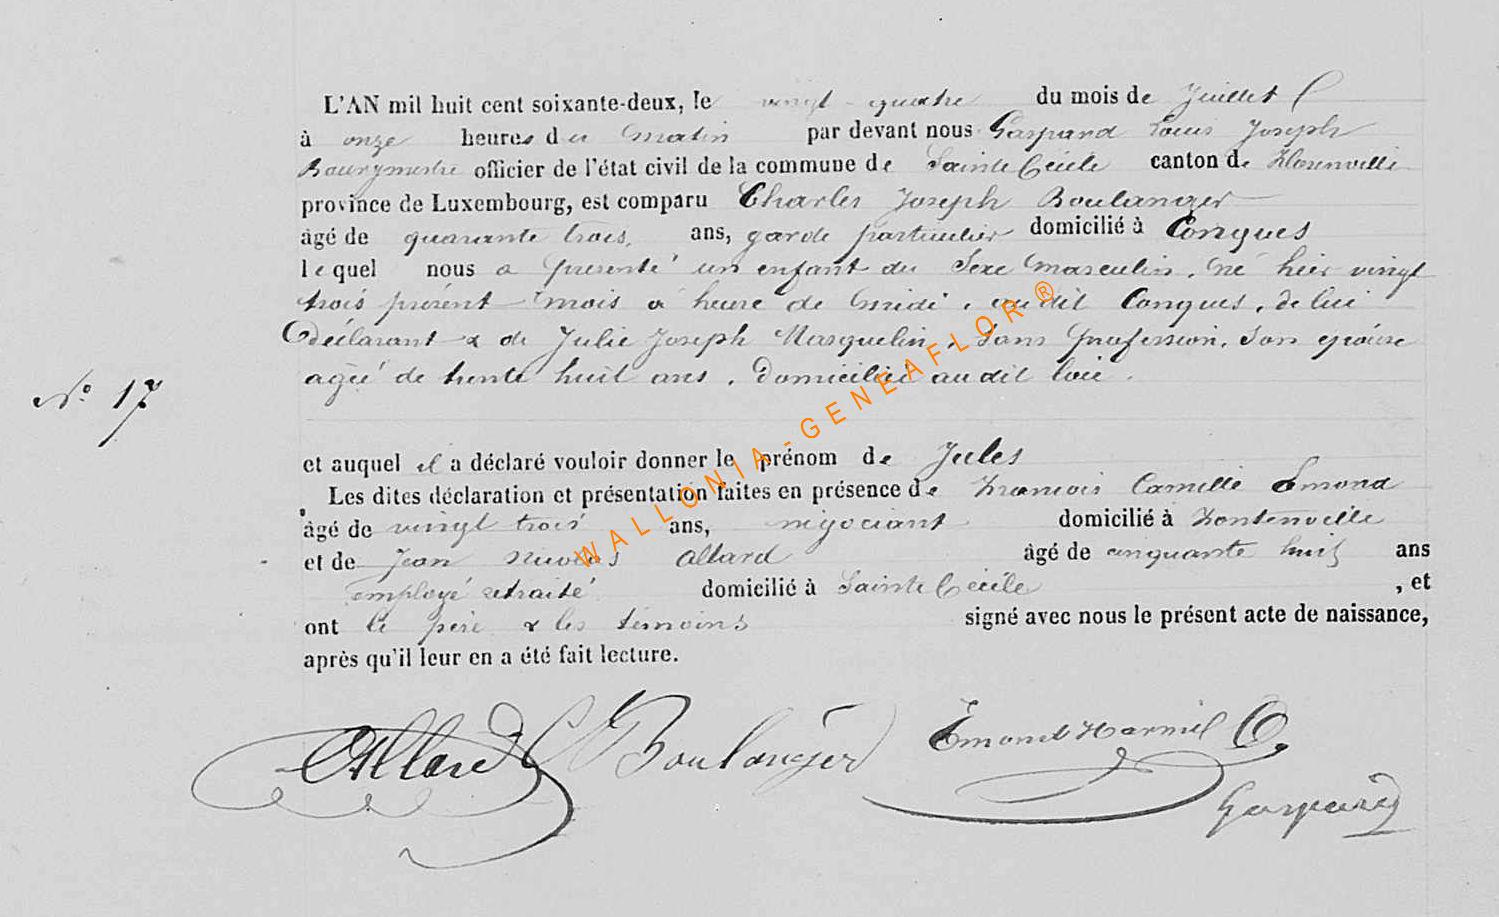 L'AN mil huit cent soixante-deux, le vingt-quatre du mois de Juillet
à onze heures du matin par devant nous Gaspard Louis Joseph
Bourgmestre officier de l'état civil de la commune de Sainte Cécile canton de Florenville
province de Luxembourg, est comparu Charles Joseph Boulanger
âgé de quarante trois, ans, garde particulier domicilié à Conques
lequel nous a présenté un enfant du Sexe masculin, né hier vingt
trois présent mois à heure de midi, au dit Conques, de lui
Déclarant & de Julie Joseph Masquelin, Sans profession, Son épouse
agée de trente huit ans, Domiciliée au dit lieu.
N° 17
et auquel il a déclaré vouloir donner le prénom de Jules
Les dites déclaration et présentation faites en présence de François Camille Emond
âgé de vingt trois ans, négociant domicilié à Fontenoille
et de Jean Nicolas Allard âgé de cinquante huit ans
employé retraité domicilié à Sainte Cécile , et
ont le père & les témoins signé avec nous le présent acte de naissance,
après qu'il leur en a été fait lecture.
Allard Boulanger Emond
Gaspard
WALLONIA-GENEAFLOR ®